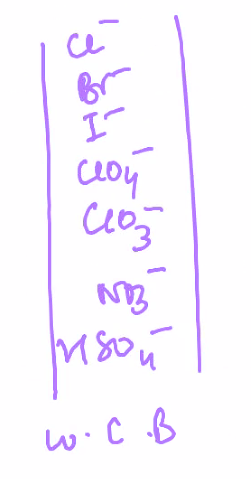 Cl⁻
Br⁻
I⁻
ClO₄⁻
ClO₃⁻
NO₃⁻
HSO₄⁻
W.C.B